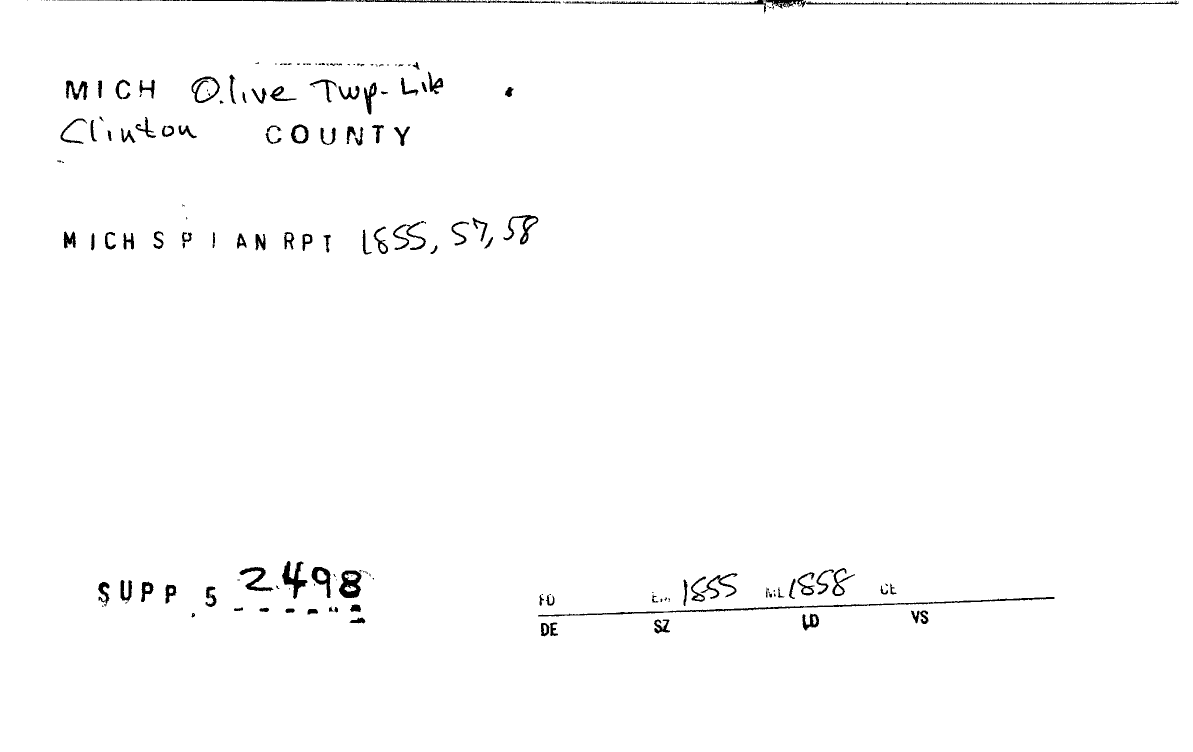 MICH Olive Twp- Lib
Clinton COUNTY
MICH S P I AN RPT 1855, 57, 58
SUPP. 5 2498
FD 1855 ML 1858 CE
DE SZ LD VS